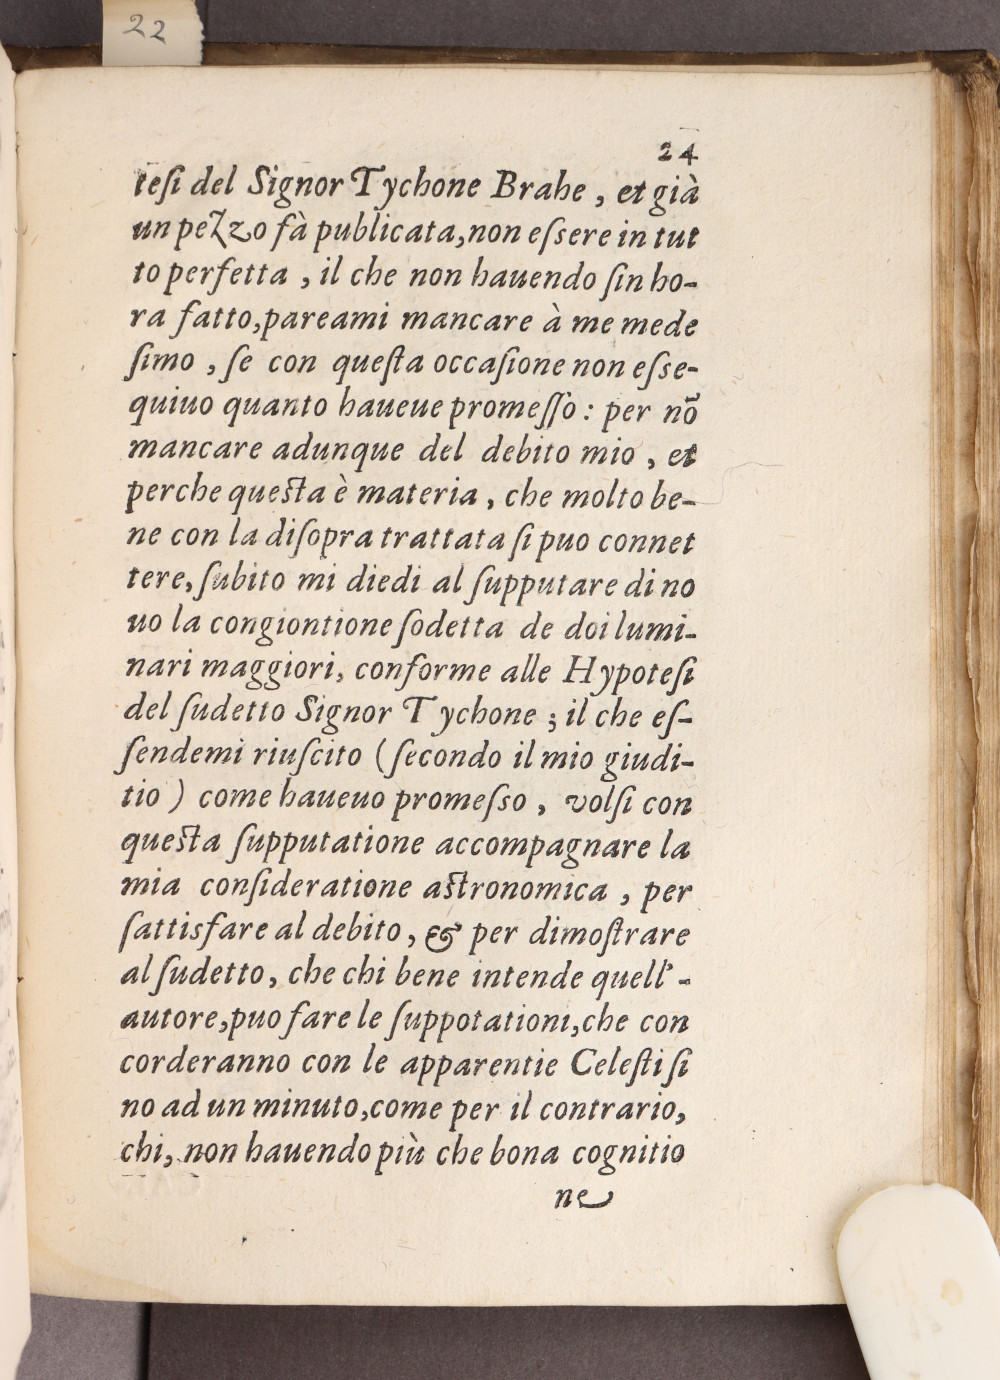 22
24
tesi del Signor Tychone Brahe, et già
un pezzo fà publicata, non eſsere in tut
to perfetta, il che non hauendo ſin ho-
ra fatto, pareami mancare à me mede
ſimo, ſe con queſta occaſione non eſse-
quiuo quanto haueue promeſſo: per nō
mancare adunque del debito mio, et
perche queſta è materia, che molto be-
ne con la diſopra trattata ſi puo connet
tere, ſubito mi diedi al ſupputare di no
uo la congiontione ſodetta de doi lumi-
nari maggiori, conforme alle Hypoteſi
del ſudetto Signor Tychone; il che eſ-
ſendemi riuſcito (ſecondo il mio giudi-
tio) come haueuo promeſso, volſi con
queſta ſupputatione accompagnare la
mia conſideratione aſtronomica, per
ſattisfare al debito, & per dimoſtrare
al ſudetto, che chi bene intende quell'-
autore, puo fare le ſuppotationi, che con
corderanno con le apparentie Celeſti ſi
no ad un minuto, come per il contrario,
chi, non hauendo più che bona cognitio
ne